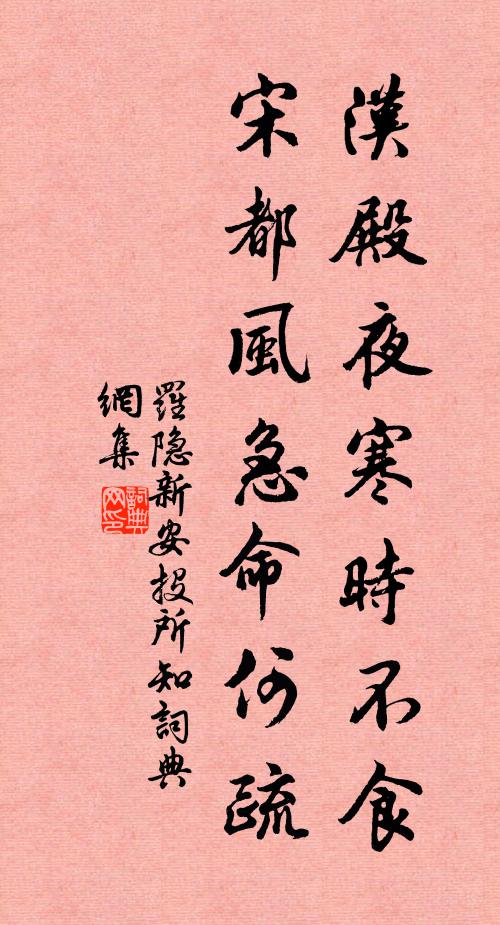 漢殿夜寒時不食
宋都風急命何疏
羅隐新安投所知詞典
網集
詞典
网印